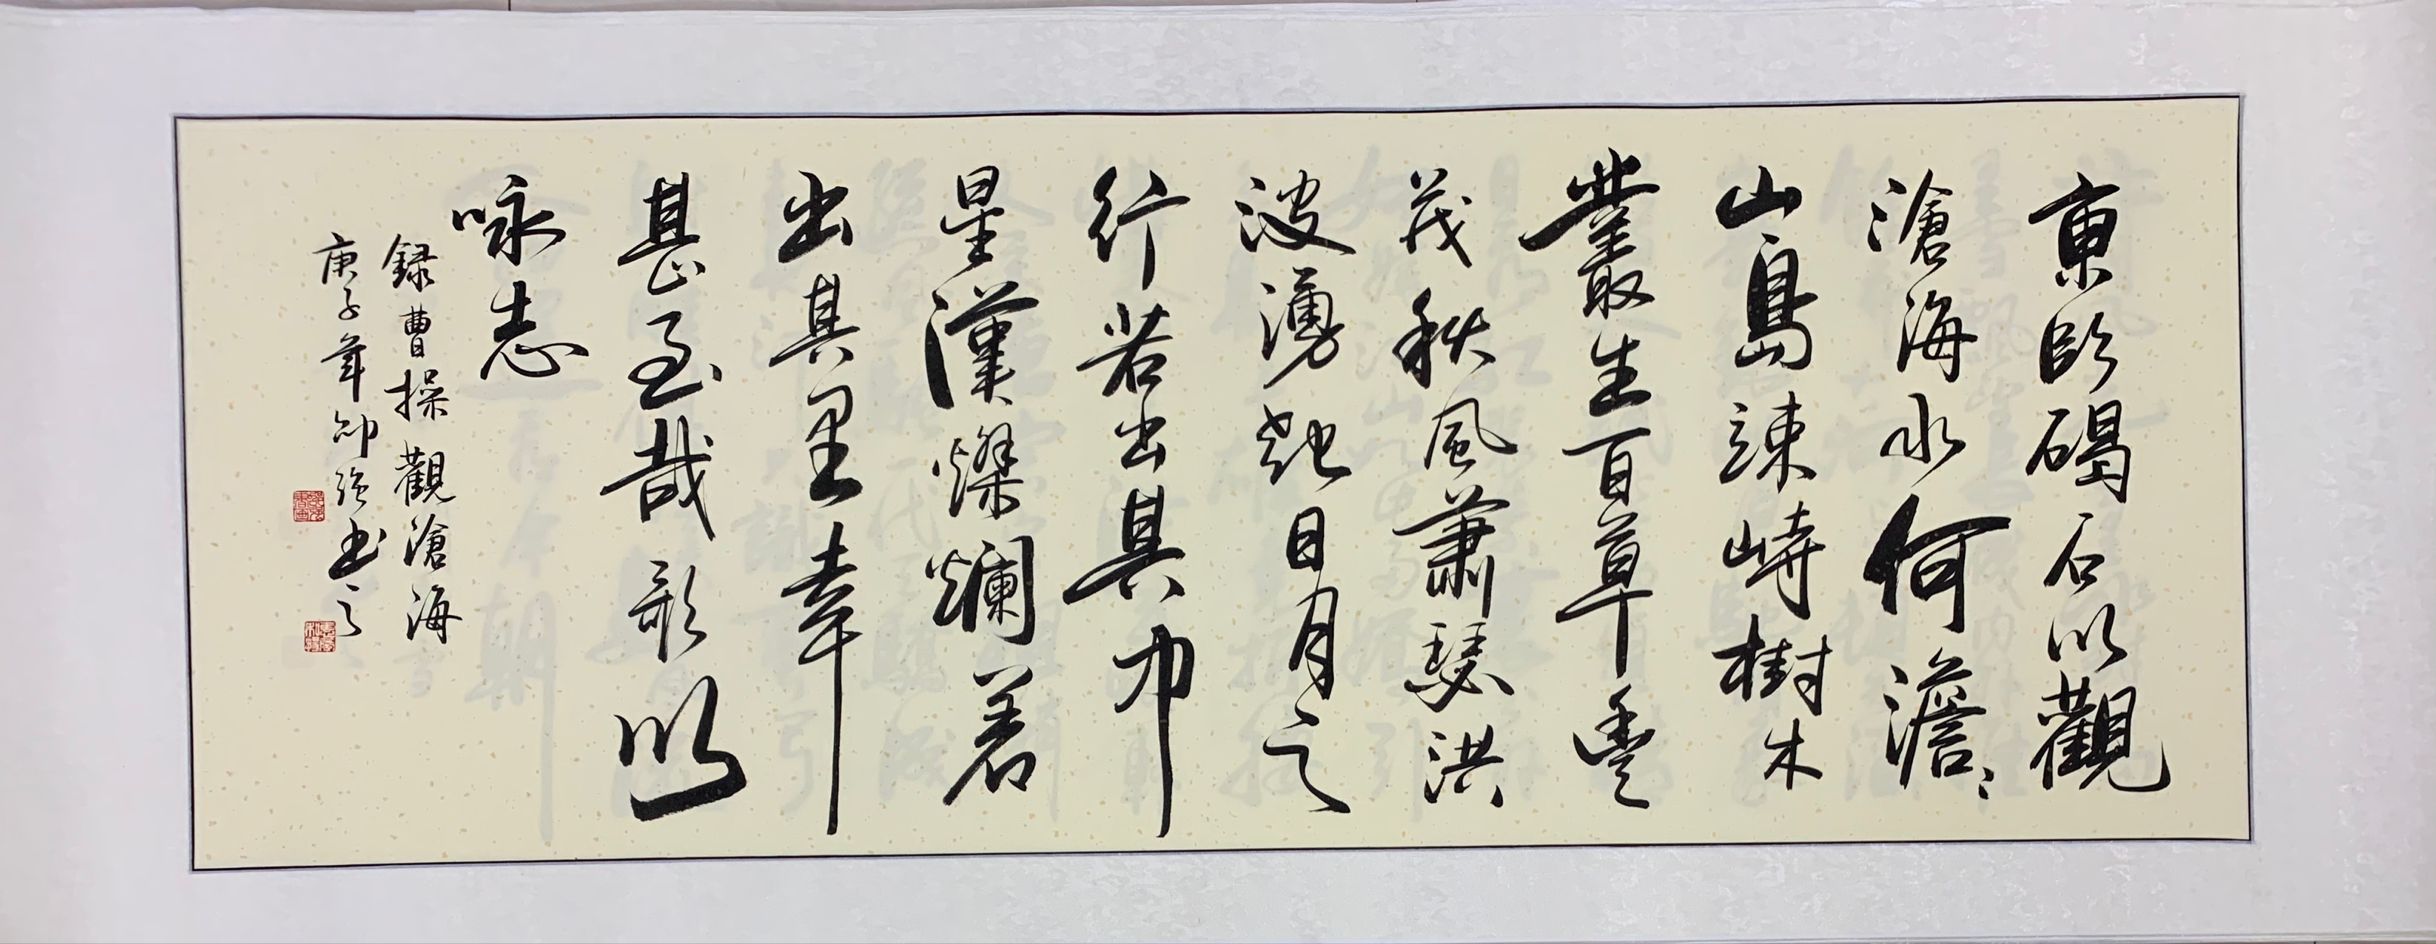 東臨碣石以觀
滄海水何澹〻
山島竦峙樹木
叢生百草豐
茂秋風蕭瑟洪
波湧起日月之
行若出其中
星漢燦爛若
出其里幸
甚至哉歌以
咏志
錄曹操觀滄海
庚子年 書之